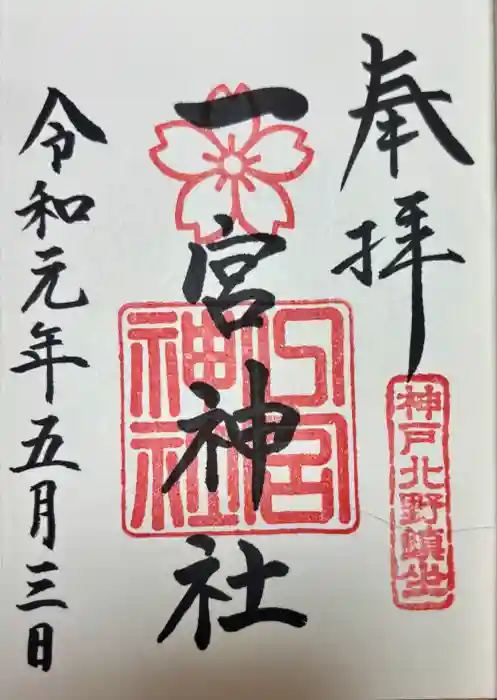 奉拝
神戸北野鎮坐
一宮神社
神社
令和元年五月三日